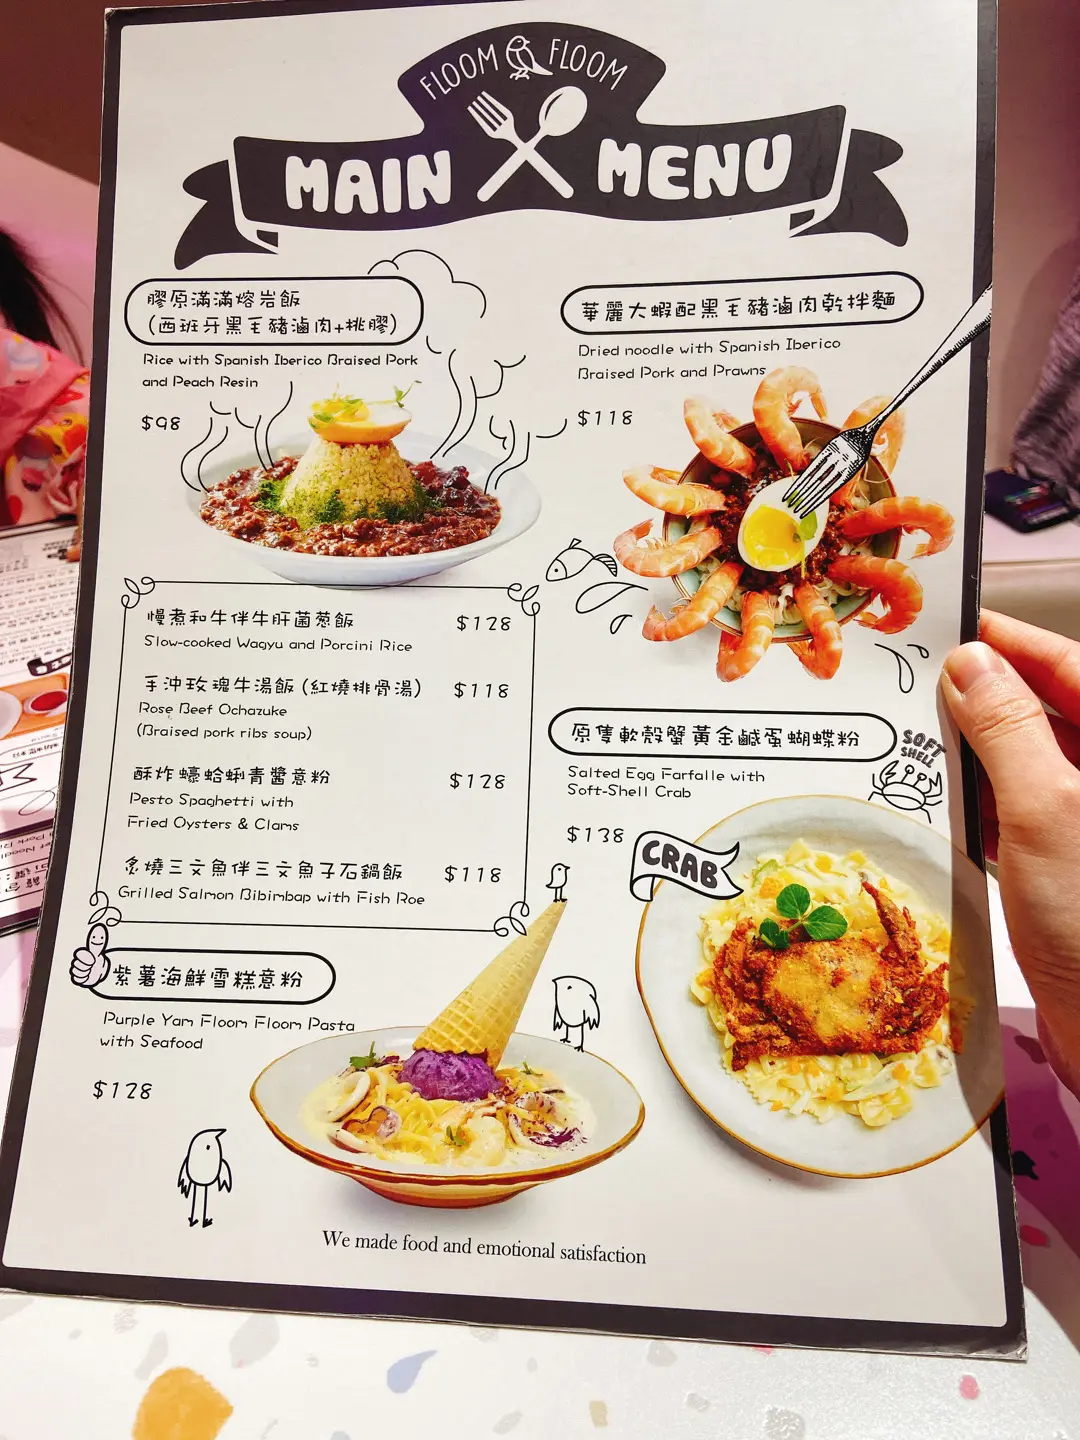 FLOOM FLOOM
MAIN MENU
膠原滿滿熔岩飯
(西班牙黑毛豬滷肉+桃膠)
Rice with Spanish Iberico Braised Pork
and Peach Resin
$98
華麗大蝦配黑毛豬滷肉乾拌麵
Dried noodle with Spanish Iberico
Braised Pork and Prawns
$118
慢煮和牛伴牛肝菌葱飯
$128
Slow-cooked Wagyu and Porcini Rice
手沖玫瑰牛湯飯 (紅燒排骨湯)
$118
Rose Beef Ochazuke
(Braised pork ribs soup)
酥炸蠔蛤蜊青醬意粉
$128
Pesto Spaghetti with
Fried Oysters & Clams
炙燒三文魚伴三文魚子石鍋飯
$118
Grilled Salmon Bibimbap with Fish Roe
原隻軟殼蟹黃金鹹蛋蝴蝶粉
SOFT
SHELL
Salted Egg Farfalle with
Soft-Shell Crab
$138
CRAB
紫薯海鮮雪糕意粉
Purple Yam Floom Floom Pasta
with Seafood
$128
We made food and emotional satisfaction